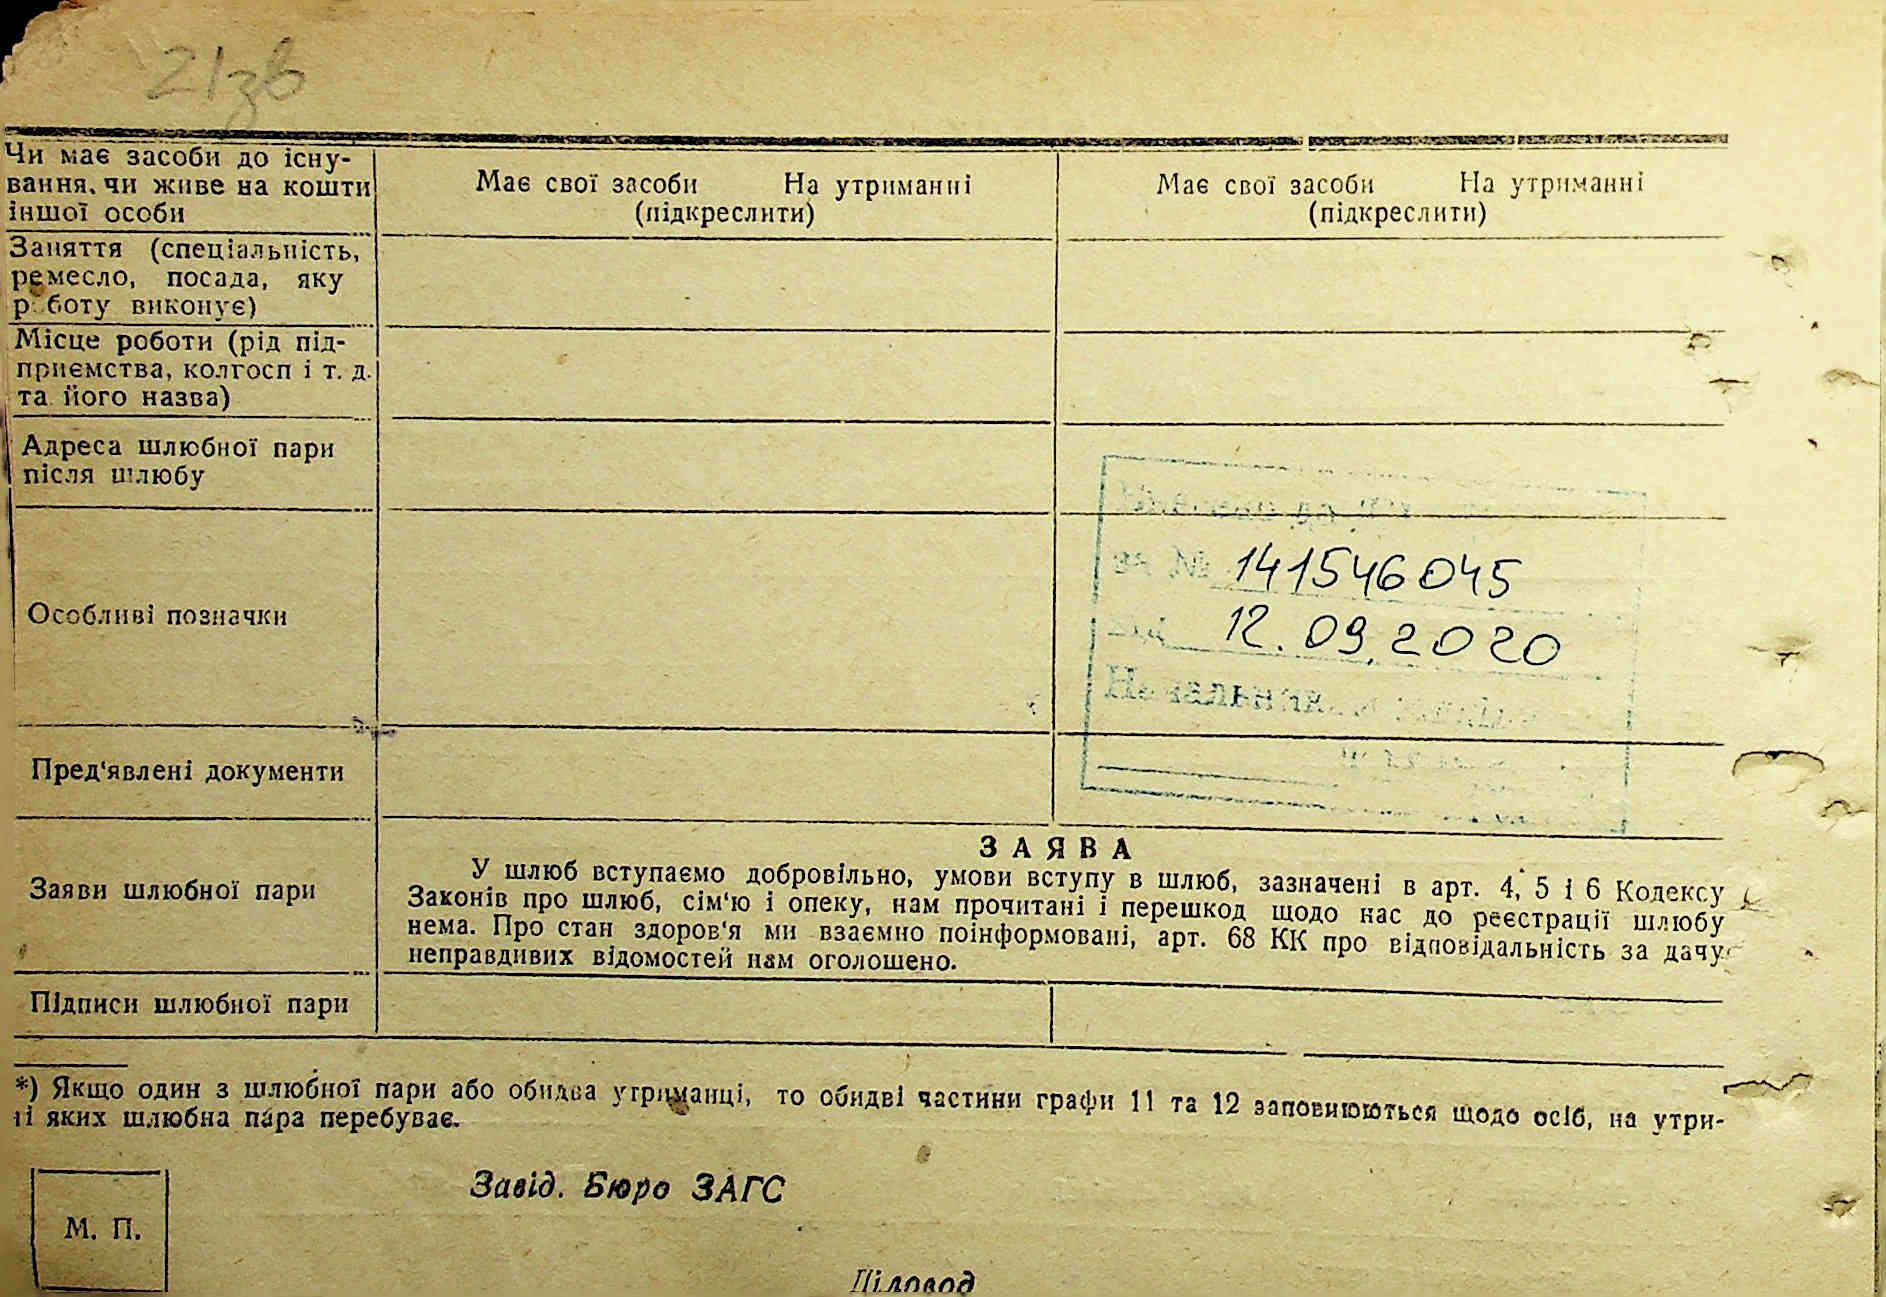 21зв
Чи має засоби до існу-
вання, чи живе на кошти
іншої особи
Має свої засоби На утриманні
(підкреслити)
Має свої засоби На утриманні
(підкреслити)
Заняття (спеціальність,
ремесло, посада, яку
роботу виконує)
Місце роботи (рід під-
приємства, колгосп і т. д.
та його назва)
Адреса шлюбної пари
після шлюбу
Особливі позначки
№ 141546045
12.09.2020
Пред'явлені документи
Заяви шлюбної пари
ЗАЯВА
У шлюб вступаємо добровільно, умови вступу в шлюб, зазначені в арт. 4, 5 і 6 Кодексу
Законів про шлюб, сім'ю і опеку, нам прочитані і перешкод щодо нас до реєстрації шлюбу
нема. Про стан здоров'я ми взаємно поінформовані, арт. 68 КК про відповідальність за дачу
неправдивих відомостей нам оголошено.
Підписи шлюбної пари
*) Якщо один з шлюбної пари або обидва утриманці, то обидві частини графи 11 та 12 заповнюються щодо осіб, на утри-
ні яких шлюбна пара перебуває.
Завід. Бюро ЗАГС
М. П.
Діловод